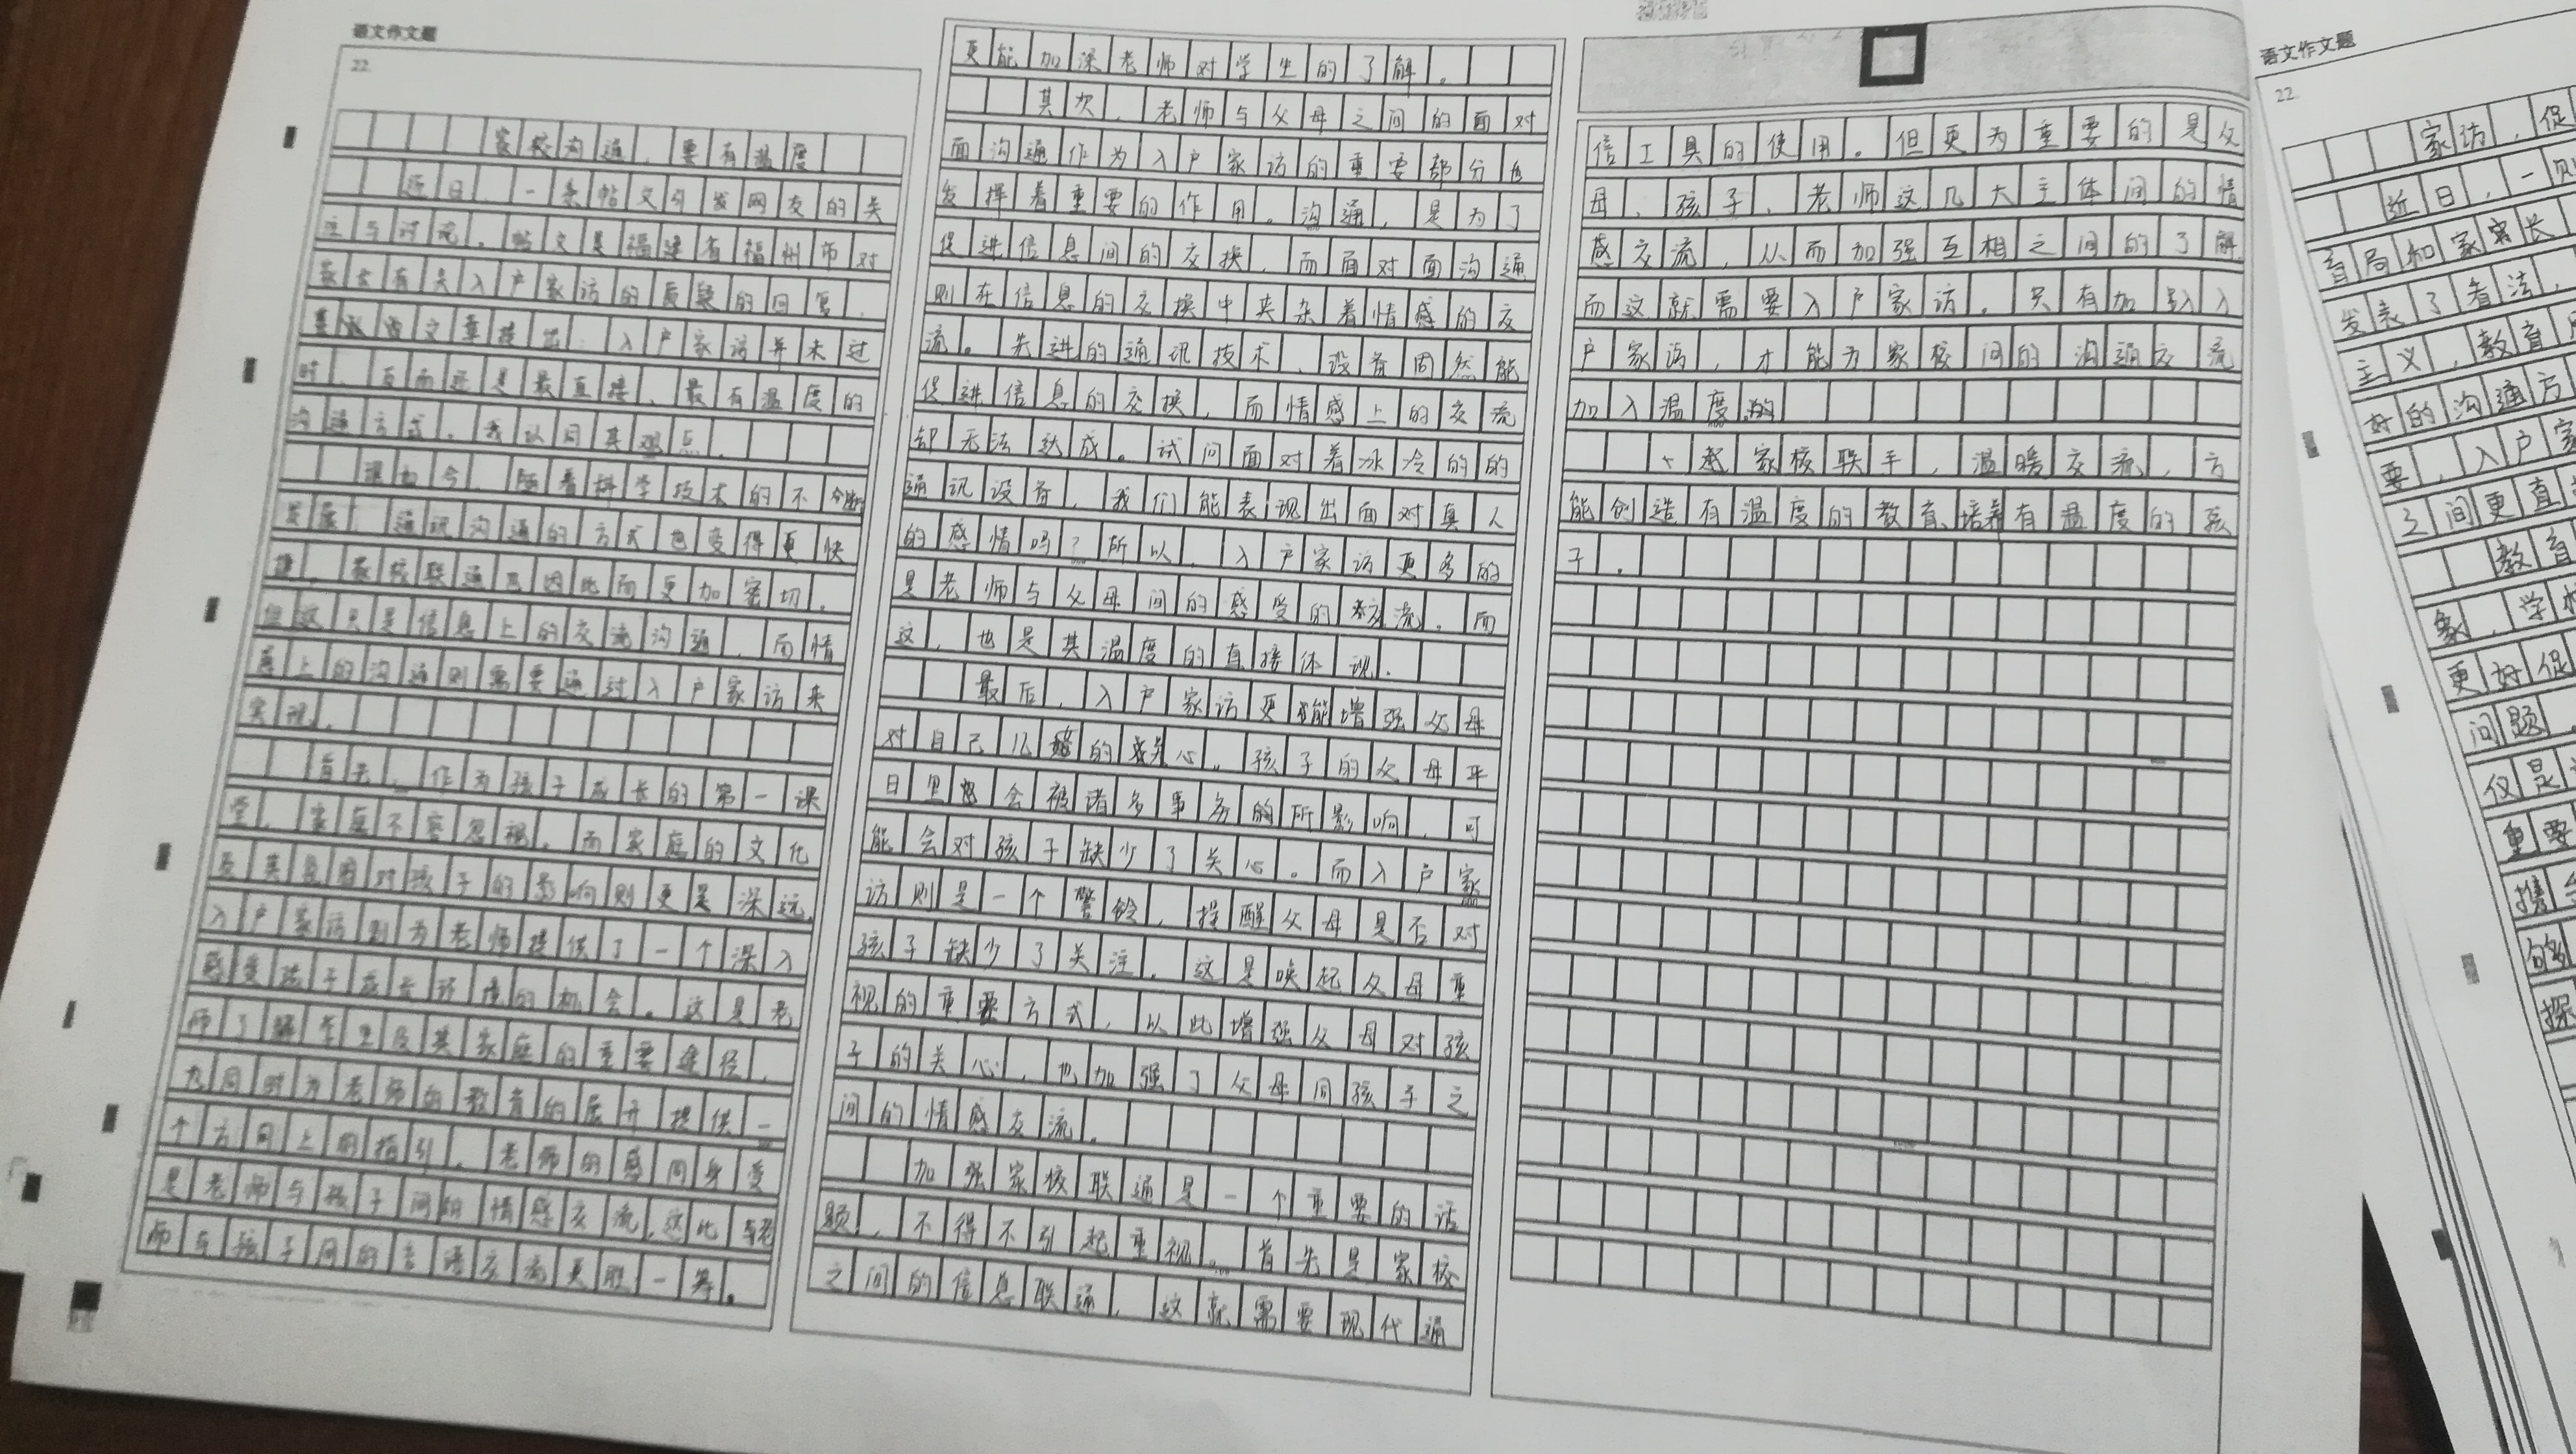 语文作文题
22.
家校沟通，要有温度
近日，一条帖文引发网友的关
注与讨论。帖文是福建省福州市对
家长有关入户家访的质疑的回复，
文章提出：入户家访并未过
时，反而还是最直接、最有温度的
沟通方式。我认同其观点。
现如今，随着科学技术的不断
发展，通讯沟通的方式也变得更快
捷，家校联通也因此而更加密切。
但这只是信息上的交流沟通，而情
感上的沟通则需要通过入户家访来
实现。
首先，作为孩子成长的第一课
堂，家庭不容忽视。而家庭的文化
及其氛围对孩子的影响则更是深远。
入户家访则为老师提供了一个深入
感受孩子成长环境的机会。这是老
师了解学生及其家庭的重要途径，
也同时为老师的教育的展开提供一
个方向上的指引。老师的感同身受
是老师与孩子间的情感交流，这比老
师与孩子间的言语交流更胜一筹。
更能加深老师对学生的了解。
其次，老师与父母之间的面对
面沟通作为入户家访的重要部分也
发挥着重要的作用。沟通，是为了
促进信息间的交换，而面对面沟通
则在信息的交换中夹杂着情感的交
流。先进的通讯技术、设备固然能
促进信息的交换，而情感上的交流
却无法达成。试问面对着冰冷的的
通讯设备，我们能表现出面对真人
的感情吗？所以，入户家访更多的
是老师与父母间的感受的交流。而
这，也是其温度的直接体现。
最后，入户家访更能增强父母
对自己儿的关心。孩子的父母平
日里会被诸多事务的所影响，可
能会对孩子缺少了关心。而入户家
访则是一个警铃，提醒父母是否对
孩子缺少了关注。这是唤起父母重
视的重要方式，以此增强父母对孩
子的关心，也加强了父母间孩子之
间的情感交流。
加强家校联通是一个重要的话
题，不得不引起重视。首先是家校
之间的信息联通，这就需要现代通
信工具的使用。但更为重要的是父
母、孩子、老师这几大主体间的情
感交流，从而加强互相之间的了解
而这就需要入户家访。只有加入
户家访，才能为家校间的沟通交流
加入温度
家校联手，温暖交流，方
能创造有温度的教育、培养有温度的孩
子。
语文作文题
22.
家访，促
近日，一则
育局和家长
发表了看法，
主义，教育
好的沟通方
要，入户家
之间更直
教育
象，学校
更好促
问题，
仅是
重要
携手
够
探